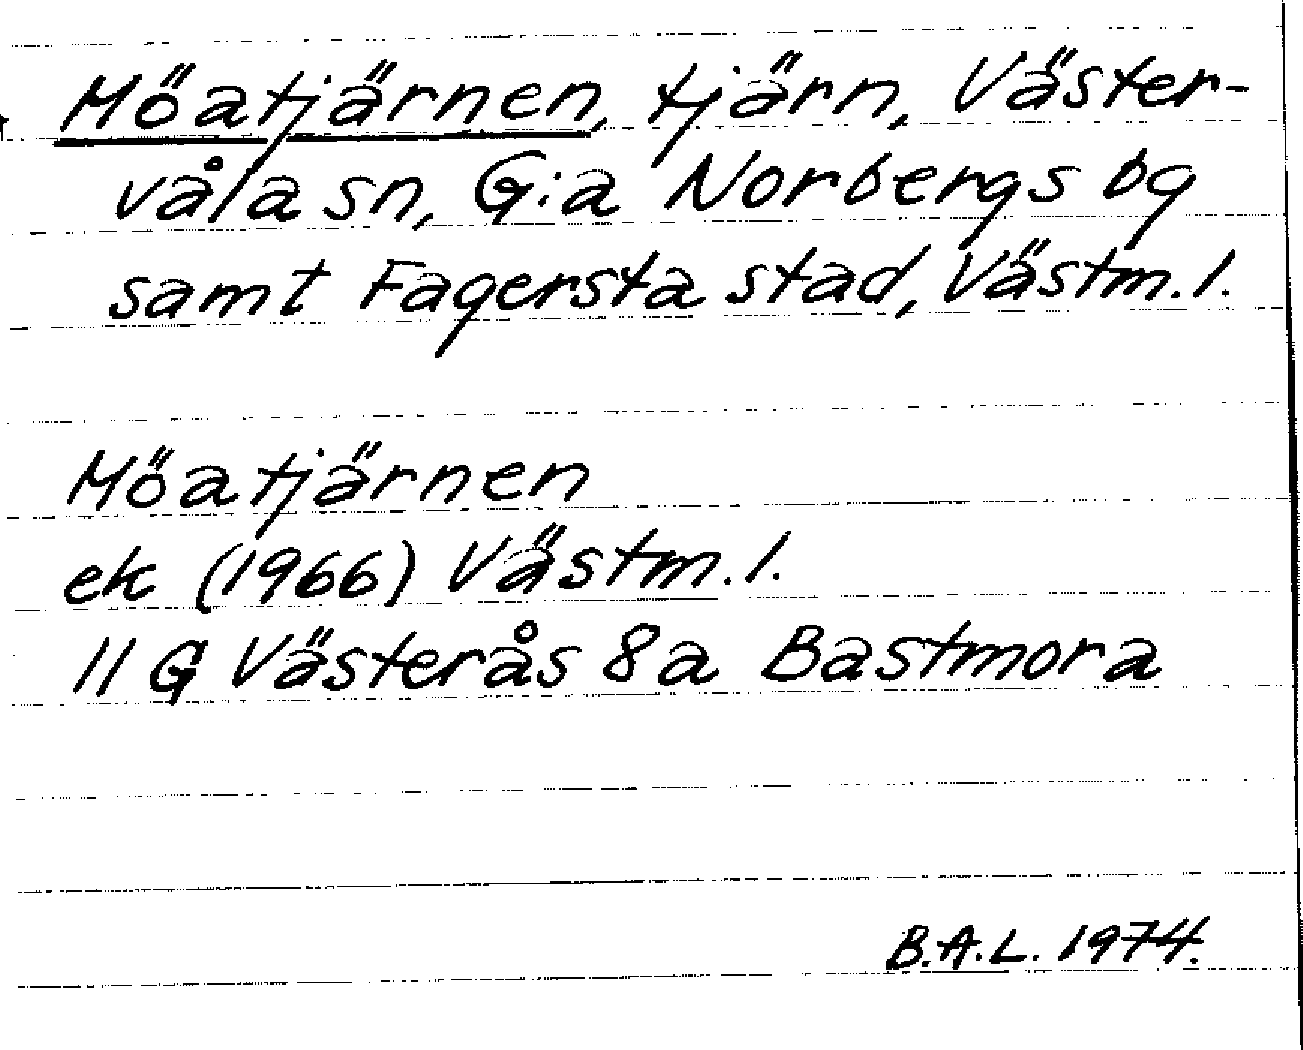 Möatjärnen, tjärn, Väster-
våla sn, G:a Norbergs bg
samt Fagersta stad, Västm. l.
Möatjärnen
ek (1966) Västm. l.
11 G Västerås 8a Bastmora
B.A.L. 1974.